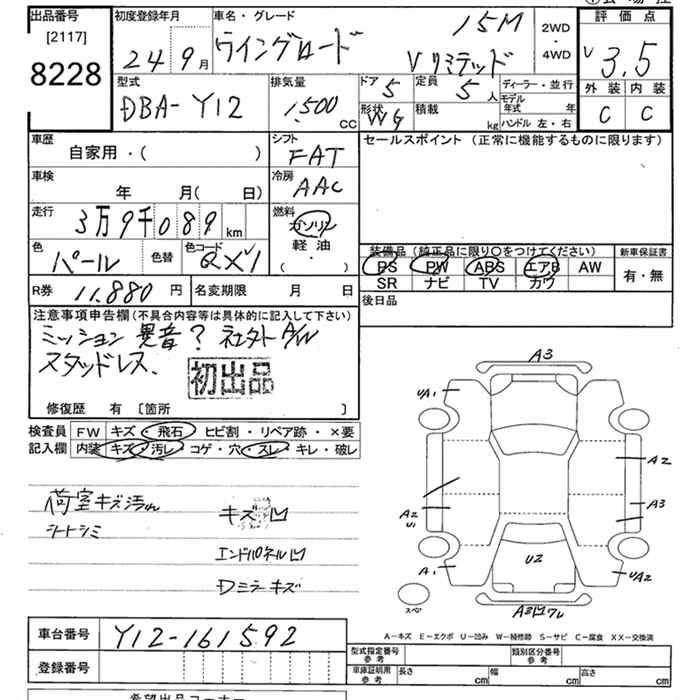 出品番号
[2117]
8228
初度登録年月
24 9月
車名・グレード
ウイングロード
15M
Vリミテッド
2WD
・
4WD
評価点
V 3.5
外装 内装
C C
型式
DBA-Y12
排気量
1,500
CC
ドア 5
定員 5人
形状 WG
積載 kg
ディーラー・並行
モデル年式 年
ハンドル 左・右
車歴
自家用・( )
シフト
FAT
セールスポイント (正常に機能するものに限ります)
車検
年 月( 日)
冷房
AAC
走行
3万9千089 km
燃料
ガソリン
軽油
( ・ )
色
パール
色替
色コード
QX1
装備品 (純正品に限り〇をつけてください)
PS PW ABS エアB AW
SR ナビ TV カワ
新車保証書
有・無
R券 11,880 円
名変期限 月 日
後日品
注意事項申告欄(不具合内容等は具体的に記入して下さい)
ミッション異音? ネェクト A/W
スタッドレス.
初出品
修復歴 有 [箇所 ]
検査員
記入欄
FW キズ・飛石・ヒビ割・リペア跡・×要
内装 キズ・汚レ・コゲ・穴・スレ・キレ・破レ
荷室キズ汚れ
シートシミ
キズ凹
エンドパネル凹
Dミラーキズ
A3
UA1
A2
A3
A2
U1
A1
U2
UA2
スペア
A2凹ワレ
A-キズ E-エクボ U-凹み W-補修跡 S-サビ C-腐食 XX-交換済
車台番号
Y12-161592
登録番号
型式指定番号
参考
類別区分番号
参考
車庫証明用
参考
長さ cm
幅 cm
高さ cm
希望出品コーナー